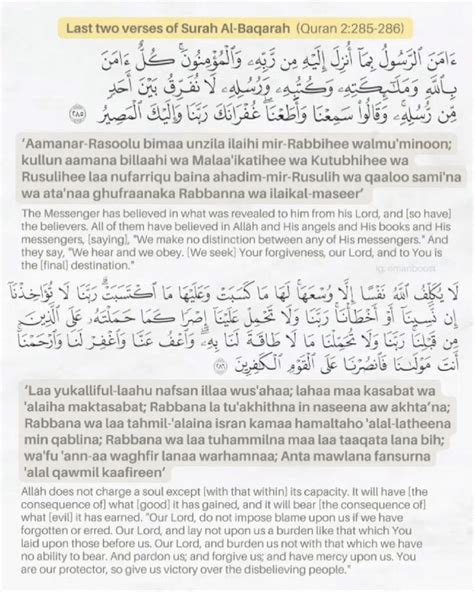 Last two verses of Surah Al-Baqarah (Quran 2:285-286)
ءَامَنَ ٱلرَّسُولُ بِمَآ أُنزِلَ إِلَيْهِ مِن رَّبِّهِۦ وَٱلْمُؤْمِنُونَ ۚ كُلٌّ ءَامَنَ
بِٱللَّهِ وَمَلَـٰٓئِكَتِهِۦ وَكُتُبِهِۦ وَرُسُلِهِۦ لَا نُفَرِّقُ بَيْنَ أَحَدٍ
مِّن رُّسُلِهِۦ ۚ وَقَالُوا۟ سَمِعْنَا وَأَطَعْنَا ۖ غُفْرَانَكَ رَبَّنَا وَإِلَيْكَ ٱلْمَصِيرُ ٢٨٥
‘Aamanar-Rasoolu bimaa unzila ilaihi mir-Rabbihee walmu'minoon;
kullun aamana billaahi wa Malaa'ikatihee wa Kutubhihee wa
Rusulihee laa nufarriqu baina ahadim-mir-Rusulih wa qaaloo sami'na
wa ata'naa ghufraanaka Rabbanna wa ilaikal-maseer’
The Messenger has believed in what was revealed to him from his Lord, and [so have]
the believers. All of them have believed in Allāh and His angels and His books and His
messengers, [saying], "We make no distinction between any of His messengers." And
they say, "We hear and we obey. [We seek] Your forgiveness, our Lord, and to You is
the [final] destination."
ig: emanboost
لَا يُكَلِّفُ ٱللَّهُ نَفْسًا إِلَّا وُسْعَهَا ۚ لَهَا مَا كَسَبَتْ وَعَلَيْهَا مَا ٱكْتَسَبَتْ ۗ رَبَّنَا لَا تُؤَاخِذْنَآ
إِن نَّسِينَآ أَوْ أَخْطَأْنَا ۚ رَبَّنَا وَلَا تَحْمِلْ عَلَيْنَآ إِصْرًا كَمَا حَمَلْتَهُۥ عَلَى ٱلَّذِينَ
مِن قَبْلِنَا ۚ رَبَّنَا وَلَا تُحَمِّلْنَا مَا لَا طَاقَةَ لَنَا بِهِۦ ۖ وَٱعْفُ عَنَّا وَٱغْفِرْ لَنَا وَٱرْحَمْنَآ ۚ
أَنتَ مَوْلَىٰنَا فَٱنصُرْنَا عَلَى ٱلْقَوْمِ ٱلْكَـٰفِرِينَ ٢٨٦
‘Laa yukalliful-laahu nafsan illaa wus'ahaa; lahaa maa kasabat wa
'alaiha maktasabat; Rabbana la tu'akhithna in naseena aw akhta’na;
Rabbana wa laa tahmil-'alaina isran kamaa hamaltaho 'alal-latheena
min qablina; Rabbana wa laa tuhammilna maa laa taaqata lana bih;
wa'fu 'ann-aa waghfir lanaa warhamnaa; Anta mawlana fansurna
'alal qawmil kaafireen’
Allāh does not charge a soul except [with that within] its capacity. It will have [the
consequence of] what [good] it has gained, and it will bear [the consequence of]
what [evil] it has earned. "Our Lord, do not impose blame upon us if we have
forgotten or erred. Our Lord, and lay not upon us a burden like that which You
laid upon those before us. Our Lord, and burden us not with that which we have
no ability to bear. And pardon us; and forgive us; and have mercy upon us. You
are our protector, so give us victory over the disbelieving people."